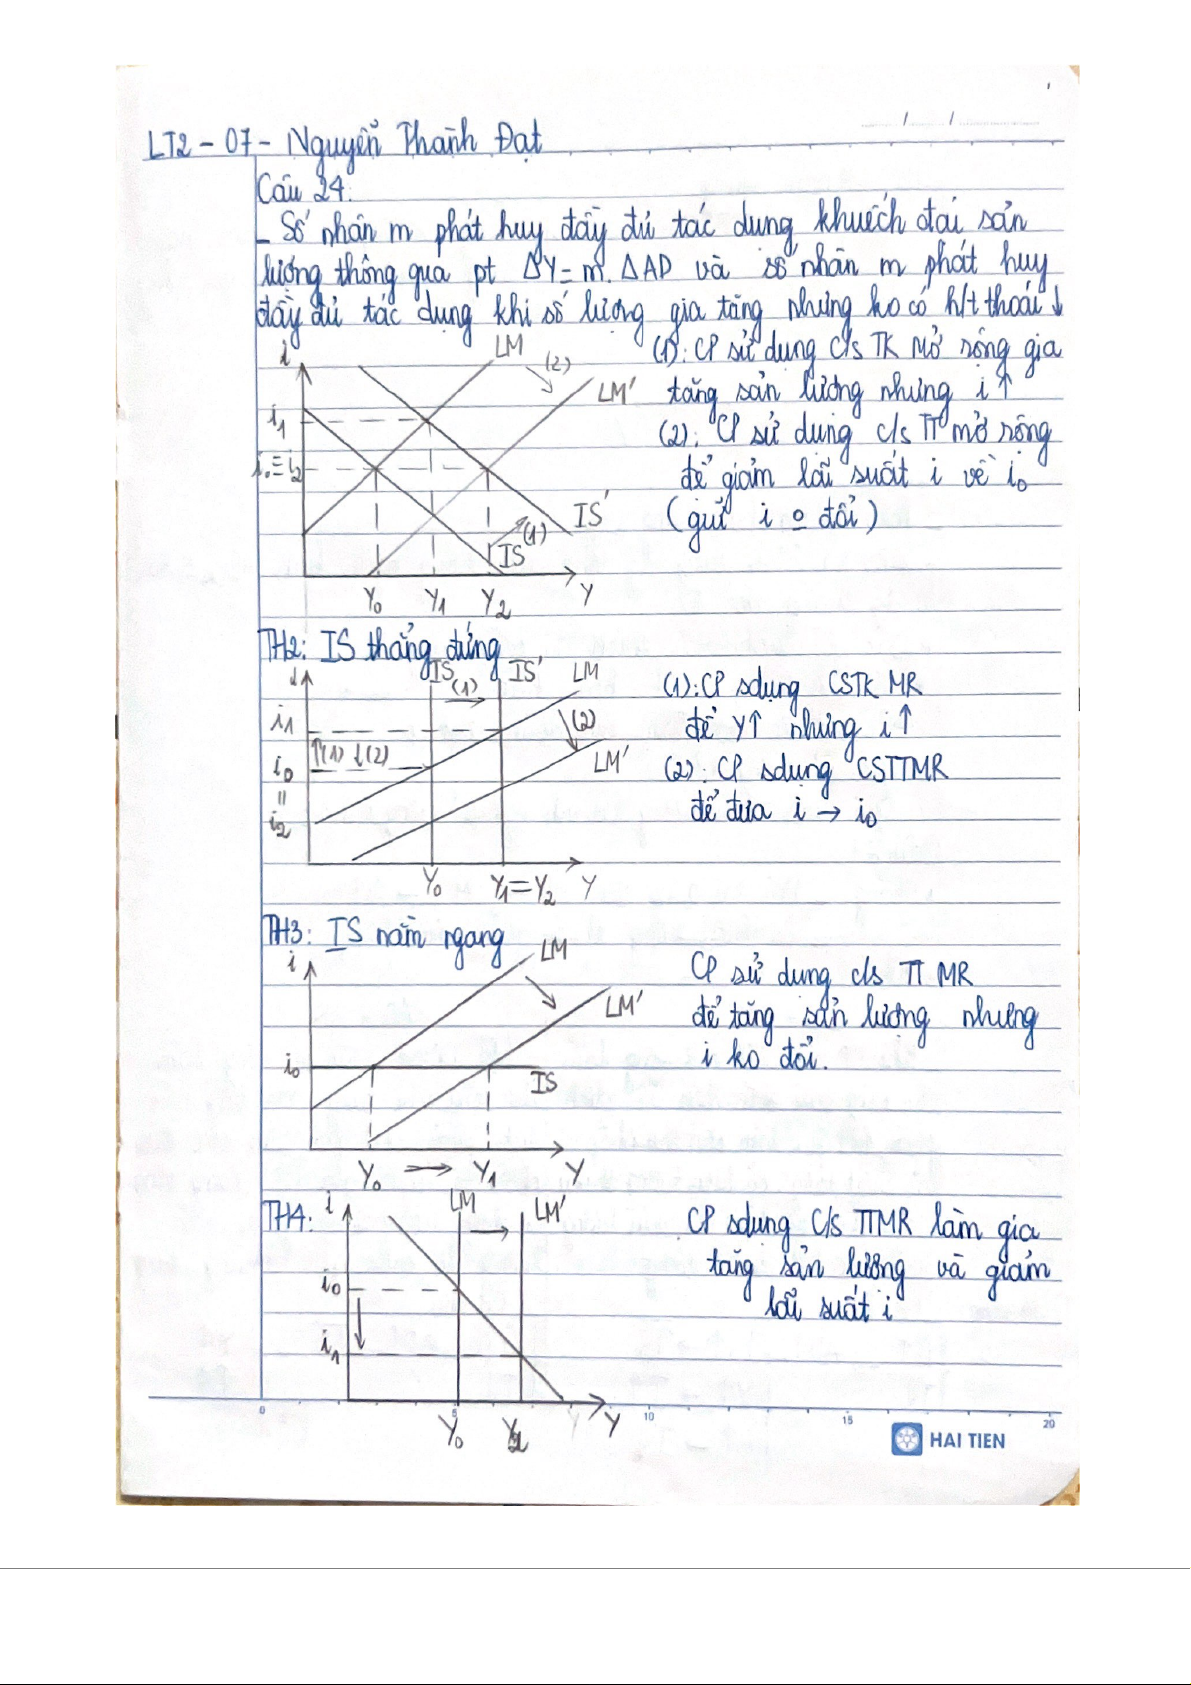 LT2 - 07 - Nguyễn Thành Đạt
Câu 24:
- Số nhân m phát huy đầy đủ tác dụng khuếch đại sản
lượng thông qua pt ΔY = m. ΔAD và số nhân m phát huy
đầy đủ tác dụng khi số lượng gia tăng nhưng ko có h/t thoái ↓
i LM (2) LM'
i1
i0 ≡ i2
IS' (1) IS
Y0 Y1 Y2 Y
(1): CP sử dụng c/s TK mở rộng gia
tăng sản lượng nhưng i ↑
(2): CP sử dụng c/s TT mở rộng
để giảm lãi suất i về i0
(giữ i o đổi)
TH2: IS thẳng đứng
i IS (1) IS' LM
i1 (2)
i0 ↑(1) ↓(2) LM'
=
i2
Y0 Y1 = Y2 Y
(1): CP sdụng CSTK MR
để Y↑ nhưng i ↑
(2): CP sdụng CSTTMR
để đưa i → i0
TH3: IS nằm ngang
i LM
LM'
i0 IS
Y0 → Y1 Y
CP sử dụng c/s TT MR
để tăng sản lượng nhưng
i ko đổi.
TH4: i LM → LM'
i0
i1
Y0 Y
CP sdụng c/s TTMR làm gia
tăng sản lượng và giảm
lãi suất i
0 5 10 15 20
HAI TIEN